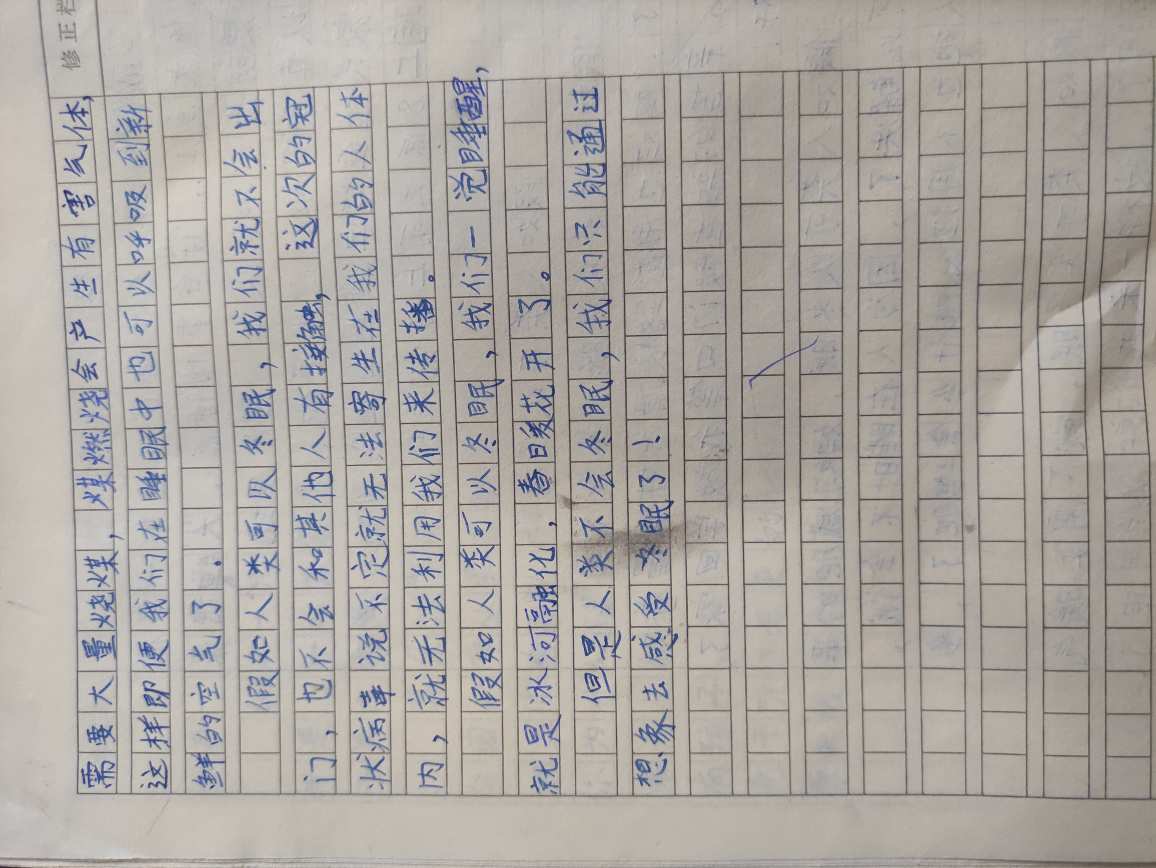 修正栏
需要大量烧煤，煤燃烧会产生有害气体，
这样即便我们在睡眠中也可以呼吸到新
鲜的空气了．
假如人类可以冬眠，我们就不会出
门，也不会和其他人有接触，这次的冠
状病毒说不定就无法寄生在我们的人体
内，就无法利用我们来传播。
假如人类可以冬眠，我们一觉睡醒，
就是冰河融化，春日暖花开了。
但是人类不会冬眠，我们只能通过
想象去感受冬眠了！